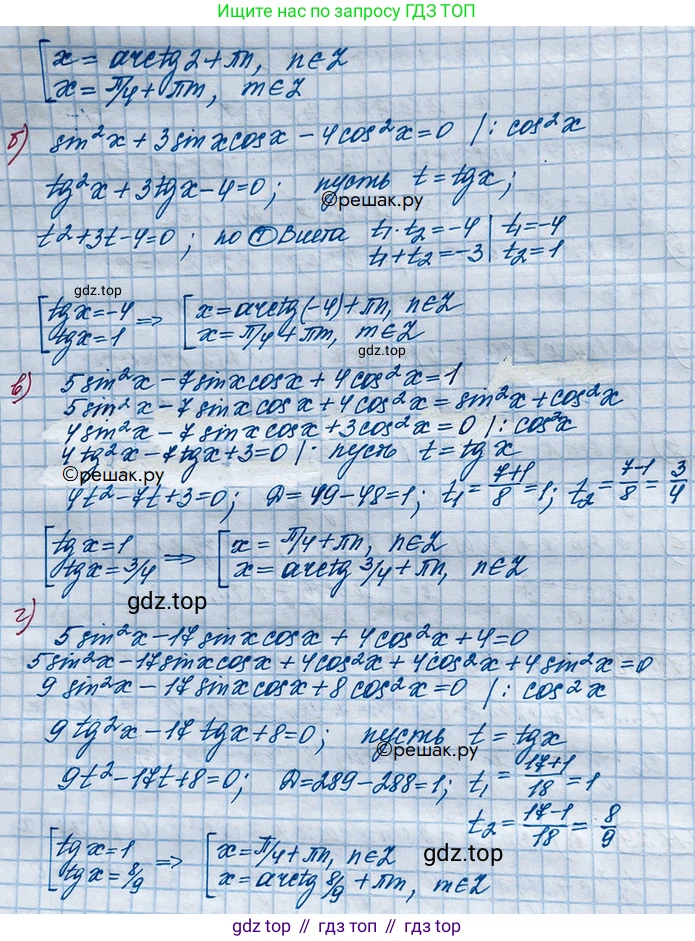 Ищите нас по запросу ГДЗ ТОП
[x = arctg2 + πn, n∈Z
[x = π/4 + πm, m∈Z
б) sin²x + 3sinxcosx − 4cos²x = 0 /: cos²x
tg²x + 3tgx − 4 = 0; пусть t = tgx;
©решак.ру
t² + 3t − 4 = 0; по Т Виета t₁·t₂ = −4 | t₁ = −4
t₁ + t₂ = −3 | t₂ = 1
gdz.top
[tgx = −4 ⇒ [x = arctg(−4) + πn, n∈Z
[tgx = 1 [x = π/4 + πm, m∈Z
gdz.top
в) 5sin²x − 7sinxcosx + 4cos²x = 1
5sin²x − 7sinxcosx + 4cos²x = sin²x + cos²x
4sin²x − 7sinxcosx + 3cos²x = 0 /: cos²x
4tg²x − 7tgx + 3 = 0 /: пусть t = tgx
©решак.ру
4t² − 7t + 3 = 0; D = 49 − 48 = 1; t₁ = (7+1)/8 = 1; t₂ = (7−1)/8 = 3/4
[tgx = 1 ⇒ [x = π/4 + πn, n∈Z
[tgx = 3/4 [x = arctg 3/4 + πn, n∈Z
gdz.top
г) 5sin²x − 17sinxcosx + 4cos²x + 4 = 0
5sin²x − 17sinxcosx + 4cos²x + 4cos²x + 4sin²x = 0
9sin²x − 17sinxcosx + 8cos²x = 0 /: cos²x
9tg²x − 17tgx + 8 = 0; пусть t = tgx
©решак.ру
9t² − 17t + 8 = 0; D = 289 − 288 = 1; t₁ = (17+1)/18 = 1
t₂ = (17−1)/18 = 8/9
[tgx = 1 ⇒ [x = π/4 + πn, n∈Z
[tgx = 8/9 [x = arctg 8/9 + πm, m∈Z
gdz.top
gdz.top // гдз.топ // gdz.top